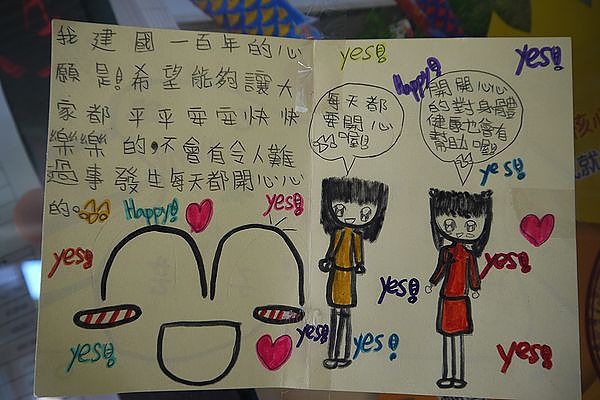 我建國一百年的心
願是!希望能夠讓大
家都平平安安快快
樂樂的,不會有令人難
過事發生每天都開心心
的。
Happy!
yes!
yes!
yes!
yes!
Happy!
yes!
每天都
要開心
喲!!
開開心心
的對身體
健康也會有
幫助喔!!
yes!
yes!
yes!
yes!
yes!
yes!